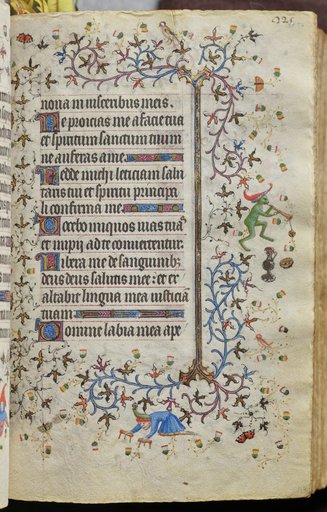 noua in uisceribus meis.
Ne proicias me a facie tua
et spiritum sanctum tuum
ne auferas a me.
Redde michi leticiam salu
taris tui et spiritu principa
li confirma me.
Docebo iniquos uias tuas
et impii ad te conuertentur.
Libera me de sanguinibz
deus deus salutis mee: et ex
altabit lingua mea iusticiā
tuam.
Domine labia mea ape